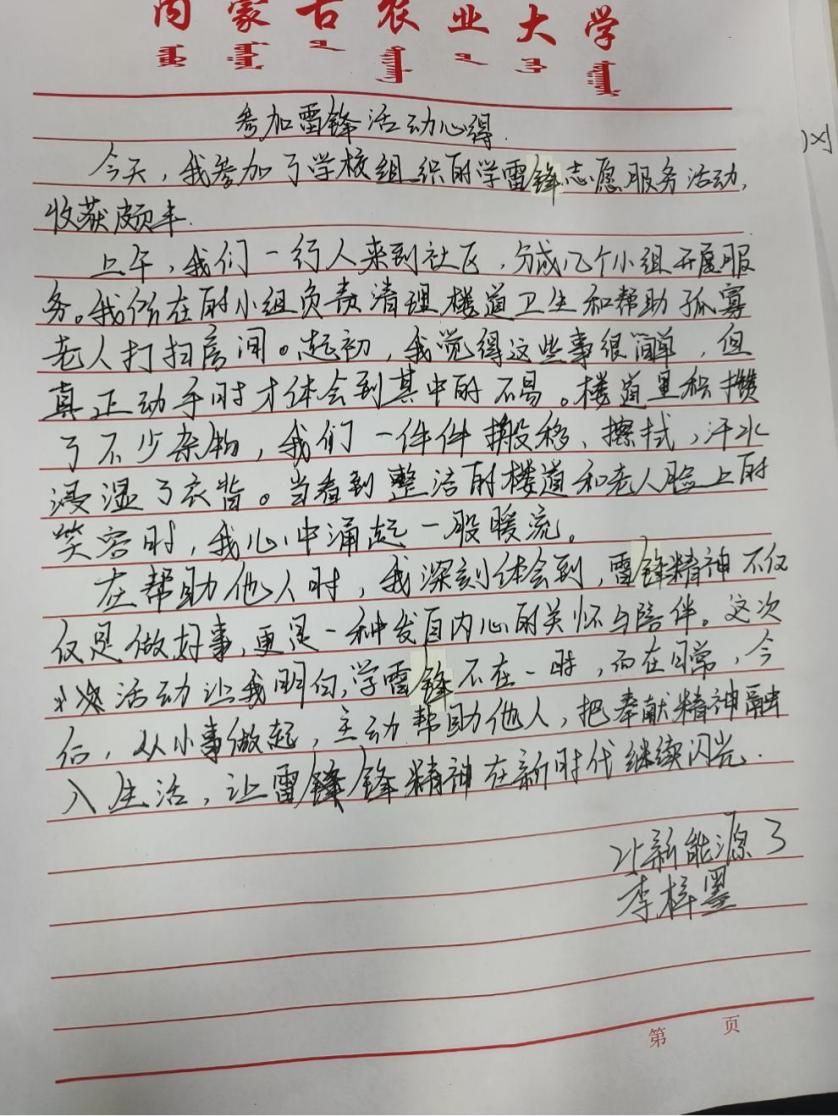 内蒙古农业大学
参加雷锋活动心得.
今天，我参加了学校组织的学雷锋志愿服务活动，
收获颇丰.
上午，我们一行人来到社区，分成几个小组开展服
务。我所在的小组负责清理楼道卫生和帮助孤寡
老人打扫房间。起初，我觉得这些事很简单，但
真正动手时才体会到其中的不易。楼道里积攒
了不少杂物，我们一件件搬移、擦拭，汗水
浸湿了衣背。当看到整洁的楼道和老人脸上的
笑容时，我心中涌起一股暖流。
在帮助他人时，我深刻体会到，雷锋精神不仅
仅是做好事，更是一种发自内心的关怀与陪伴。这次
活动让我明白，学雷锋不在一时，而在日常，今
后，从小事做起，主动帮助他人，把奉献精神融
入生活，让雷锋精神在新时代继续闪光.
新能源3
李梓墨
第 页